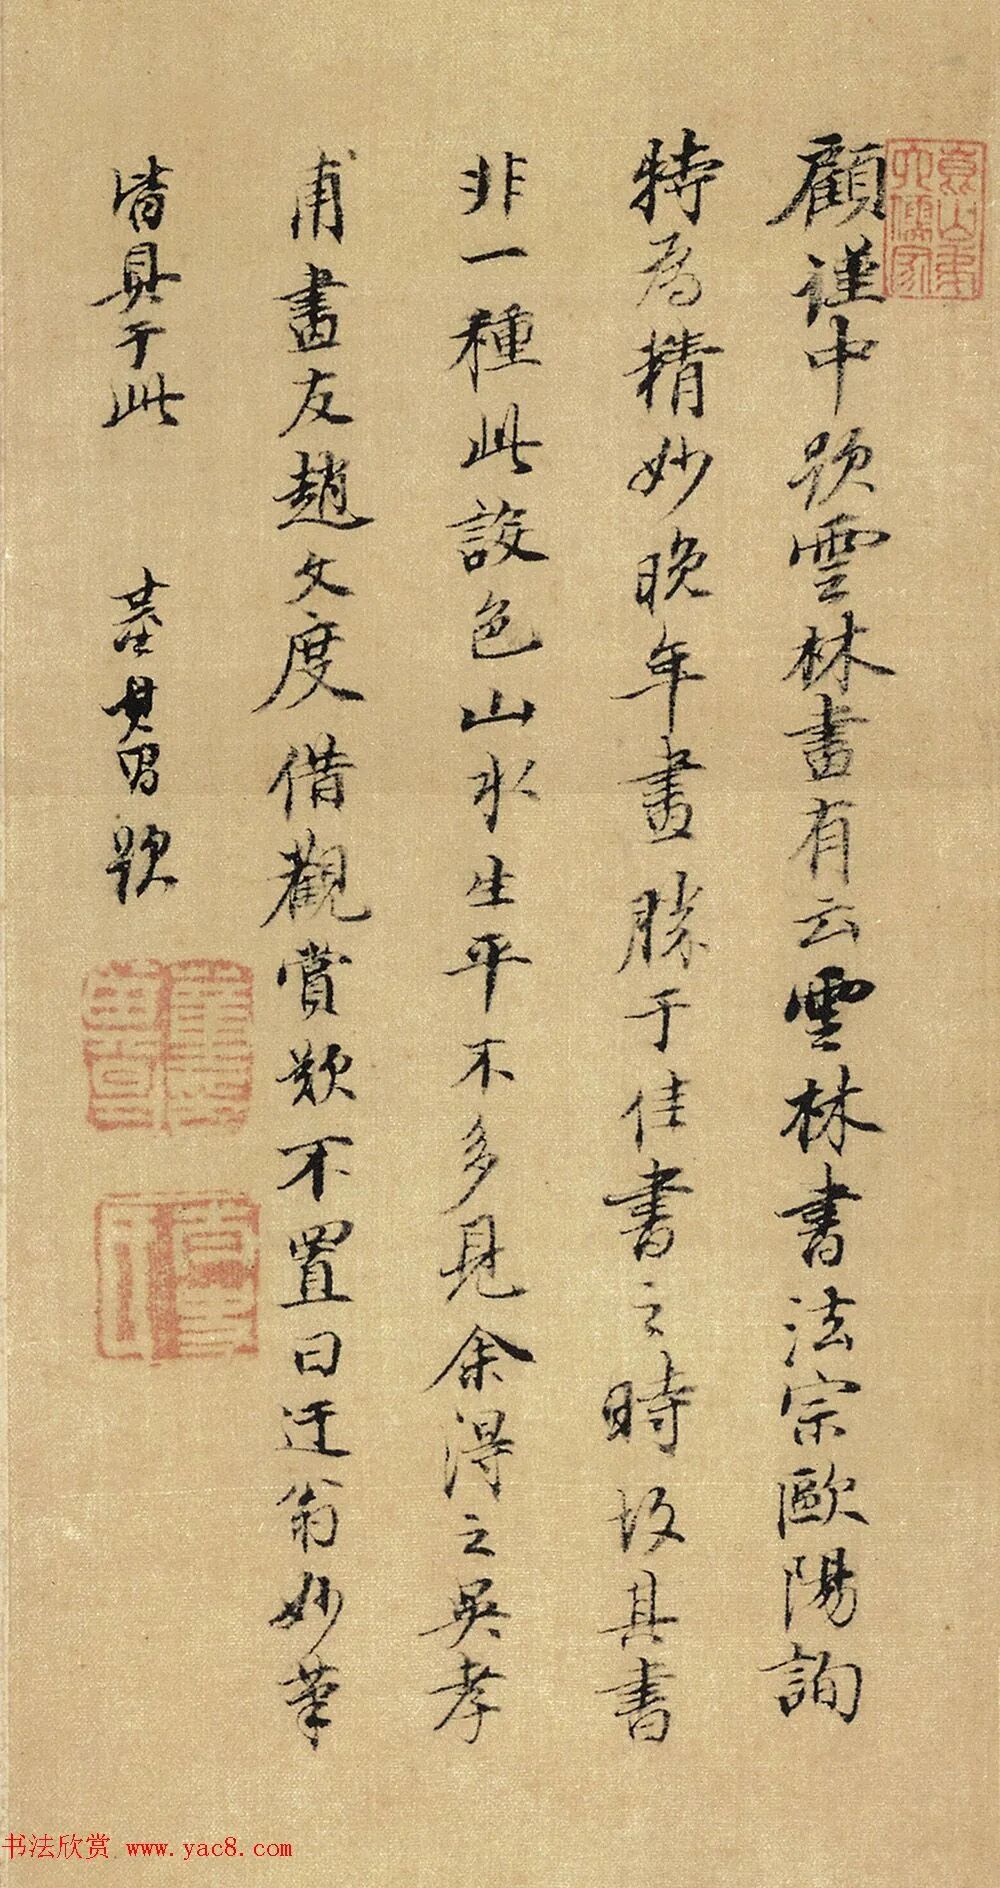 顧謹中題雲林畫有云雲林書法宗歐陽詢
特為精妙晚年畫勝于佳書之時故其書
非一種此設色山水生平不多見余得之吳孝
甫畫友趙文度借觀賞歎不置曰迂翁妙筆
皆具于此 董其昌題
董其昌
书法欣赏 www.yac8.com